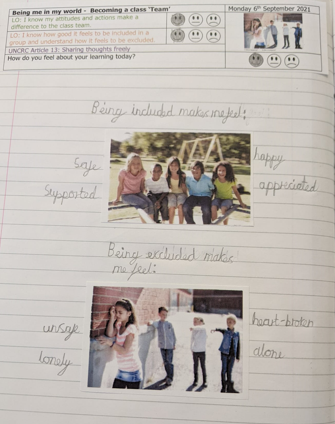 Being me in my world - Becoming a class 'Team'
LO: I know my attitudes and actions make a
difference to the class team.
LO: I know how good it feels to be included in a
group and understand how it feels to be excluded.
UNCRC Article 13: Sharing thoughts freely
How do you feel about your learning today?
Monday 6th September 2021
Being included makes me feel:
Safe
happy
Supported
appreciated
Being excluded makes
me feel:
unsafe
heart-broken
lonely
alone